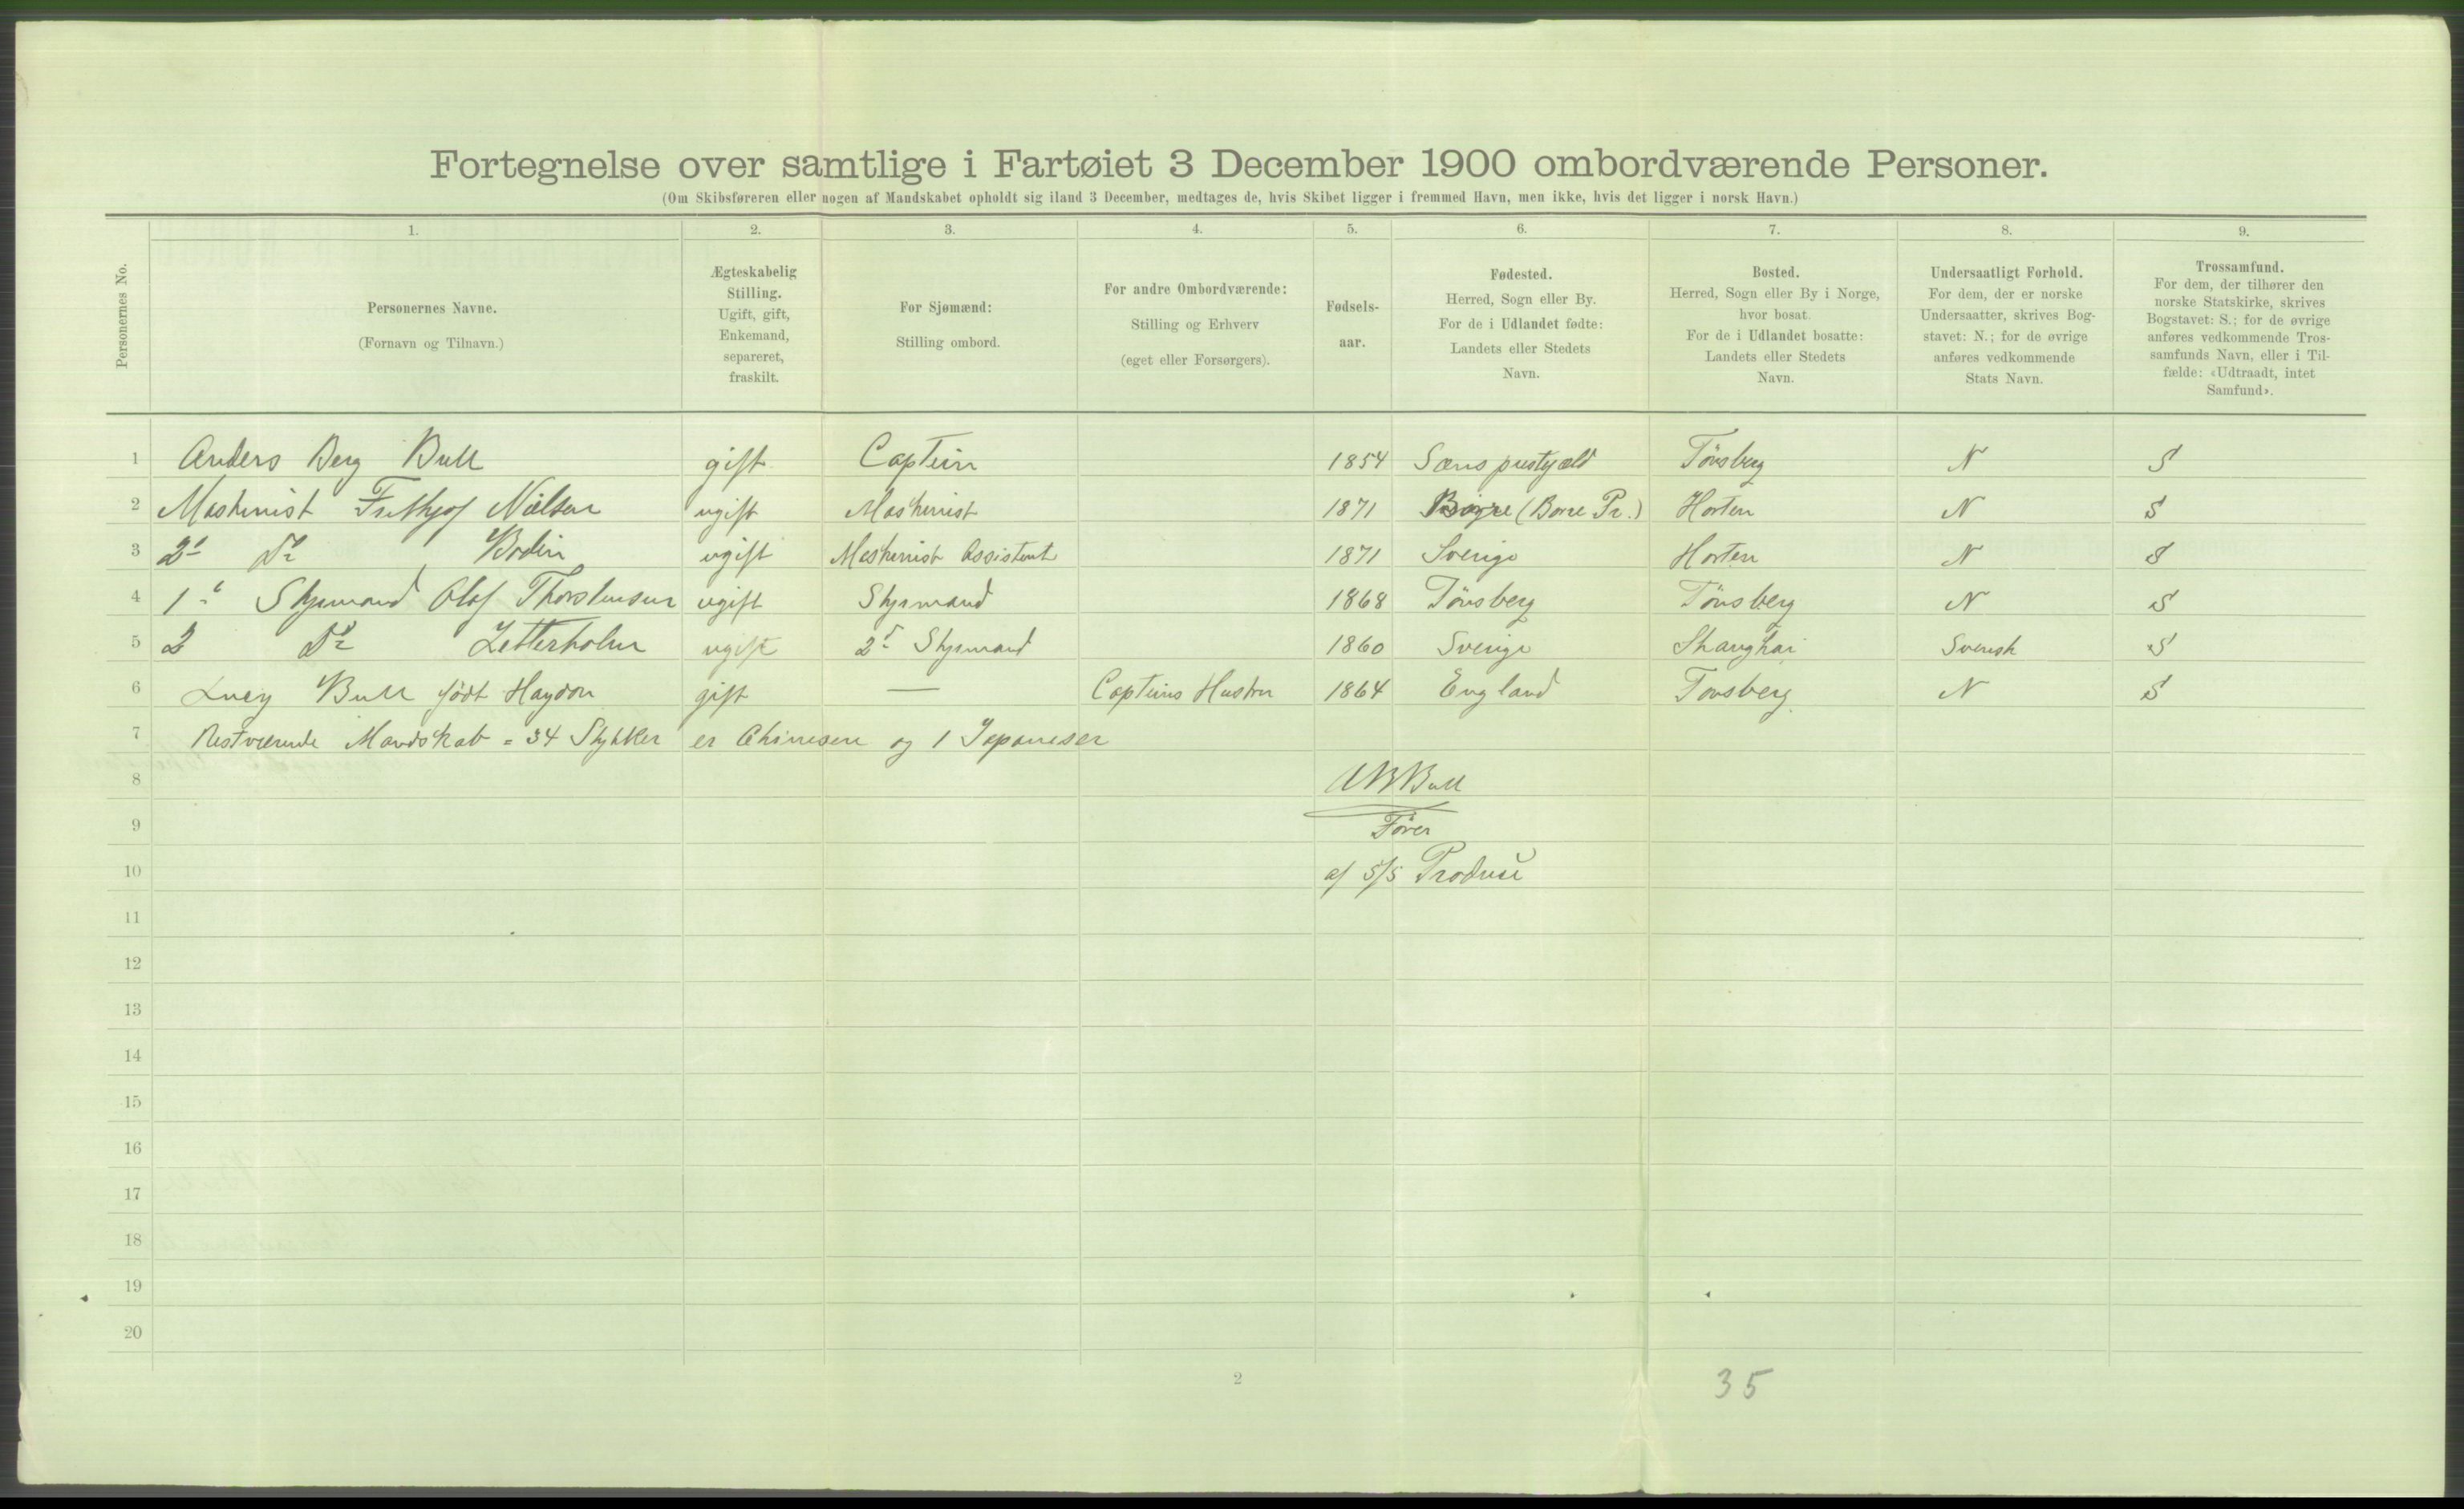 Fortegnelse over samtlige i Fartøiet 3 December 1900 ombordværende Personer.
(Om Skibsføreren eller nogen af Mandskabet opholdt sig iland 3 December, medtages de, hvis Skibet ligger i fremmed Havn, men ikke, hvis det ligger i norsk Havn.)
Personernes No.
1.
Personernes Navne.
(Fornavn og Tilnavn.)
2.
Ægteskabelig
Stilling.
Ugift, gift,
Enkemand,
separeret,
fraskilt.
3.
For Sjømænd:
Stilling ombord.
4.
For andre Ombordværende:
Stilling og Erhverv
(eget eller Forsørgers).
5.
Fødsels-
aar.
6.
Fødested.
Herred, Sogn eller By.
For de i Udlandet fødte:
Landets eller Stedets
Navn.
7.
Bosted.
Herred, Sogn eller By i Norge,
hvor bosat.
For de i Udlandet bosatte:
Landets eller Stedets
Navn.
8.
Undersaatligt Forhold.
For dem, der er norske
Undersaatter, skrives Bog-
stavet: N.; for de øvrige
anføres vedkommende
Stats Navn.
9.
Trossamfund.
For dem, der tilhører den
norske Statskirke, skrives
Bogstavet: S.; for de øvrige
anføres vedkommende Tros-
samfunds Navn, eller i Til-
fælde: «Udtraadt, intet
Samfund».
1 Anders Berg Bull gift Captein 1854 Sems prestgjæld Tönsberg N S
2 Maskinist Frithjof Nielsen ugift Maskinist 1871 (Borre Pr.) Horten N S
3 2d Do Bodin ugift Maskinist Assistent 1871 Sverige Horten N S
4 1e Styrmand Olaf Thorstensen ugift Styrmand 1868 Tönsberg Tönsberg N S
5 2 Do Zetterholm ugift 2d Styrmand 1860 Sverige Shanghai Svensk S
6 Lucy Bull födt Haydon gift — Capteins Hustru 1864 England Tonsberg N S
7 Restværende Mandskab = 34 Stykker er Chinesere og 1 Japaneser
8 ABBull
9 Förer
10 af S/S Producé
11
12
13
14
15
16
17
18
19
20
2
35